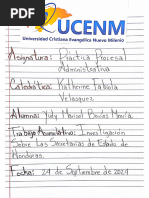 UCENM
Universidad Cristiana Evangélica Nuevo Milenio
Asignatura: Práctica Procesal
Administrativa
Catedrática: Katherine Fabiola
Velasquez
Alumna: Yudy Marisol
Trabajo Acumulativo: Investigación
Sobre Las Secretarias de Estado de
Honduras.
Fecha: 24 de Septiembre de 2024